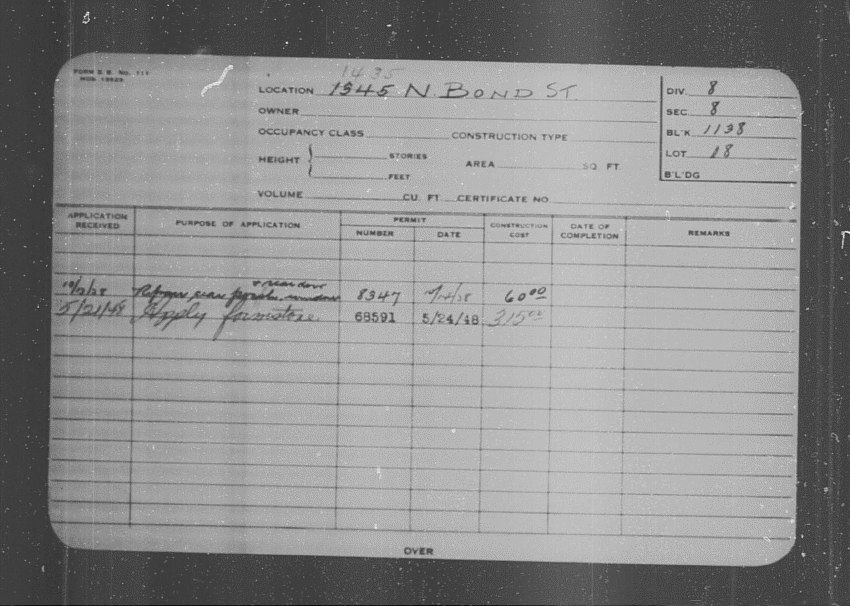 FORM B. B. No. 111
1435
LOCATION 1545 N. BOND ST
OWNER
OCCUPANCY CLASS CONSTRUCTION TYPE
HEIGHT STORIES AREA SQ. FT.
FEET
VOLUME CU. FT. CERTIFICATE NO.
DIV. 8
SEC. 8
BL'K 1138
LOT 18
B'L'DG
APPLICATION RECEIVED PURPOSE OF APPLICATION PERMIT NUMBER DATE CONSTRUCTION COST DATE OF COMPLETION REMARKS
& rear door
10/2/28 Repair rear porch, window 8347 60 00
5/21/48 Apply formstone 68591 5/24/48 315 00
OVER